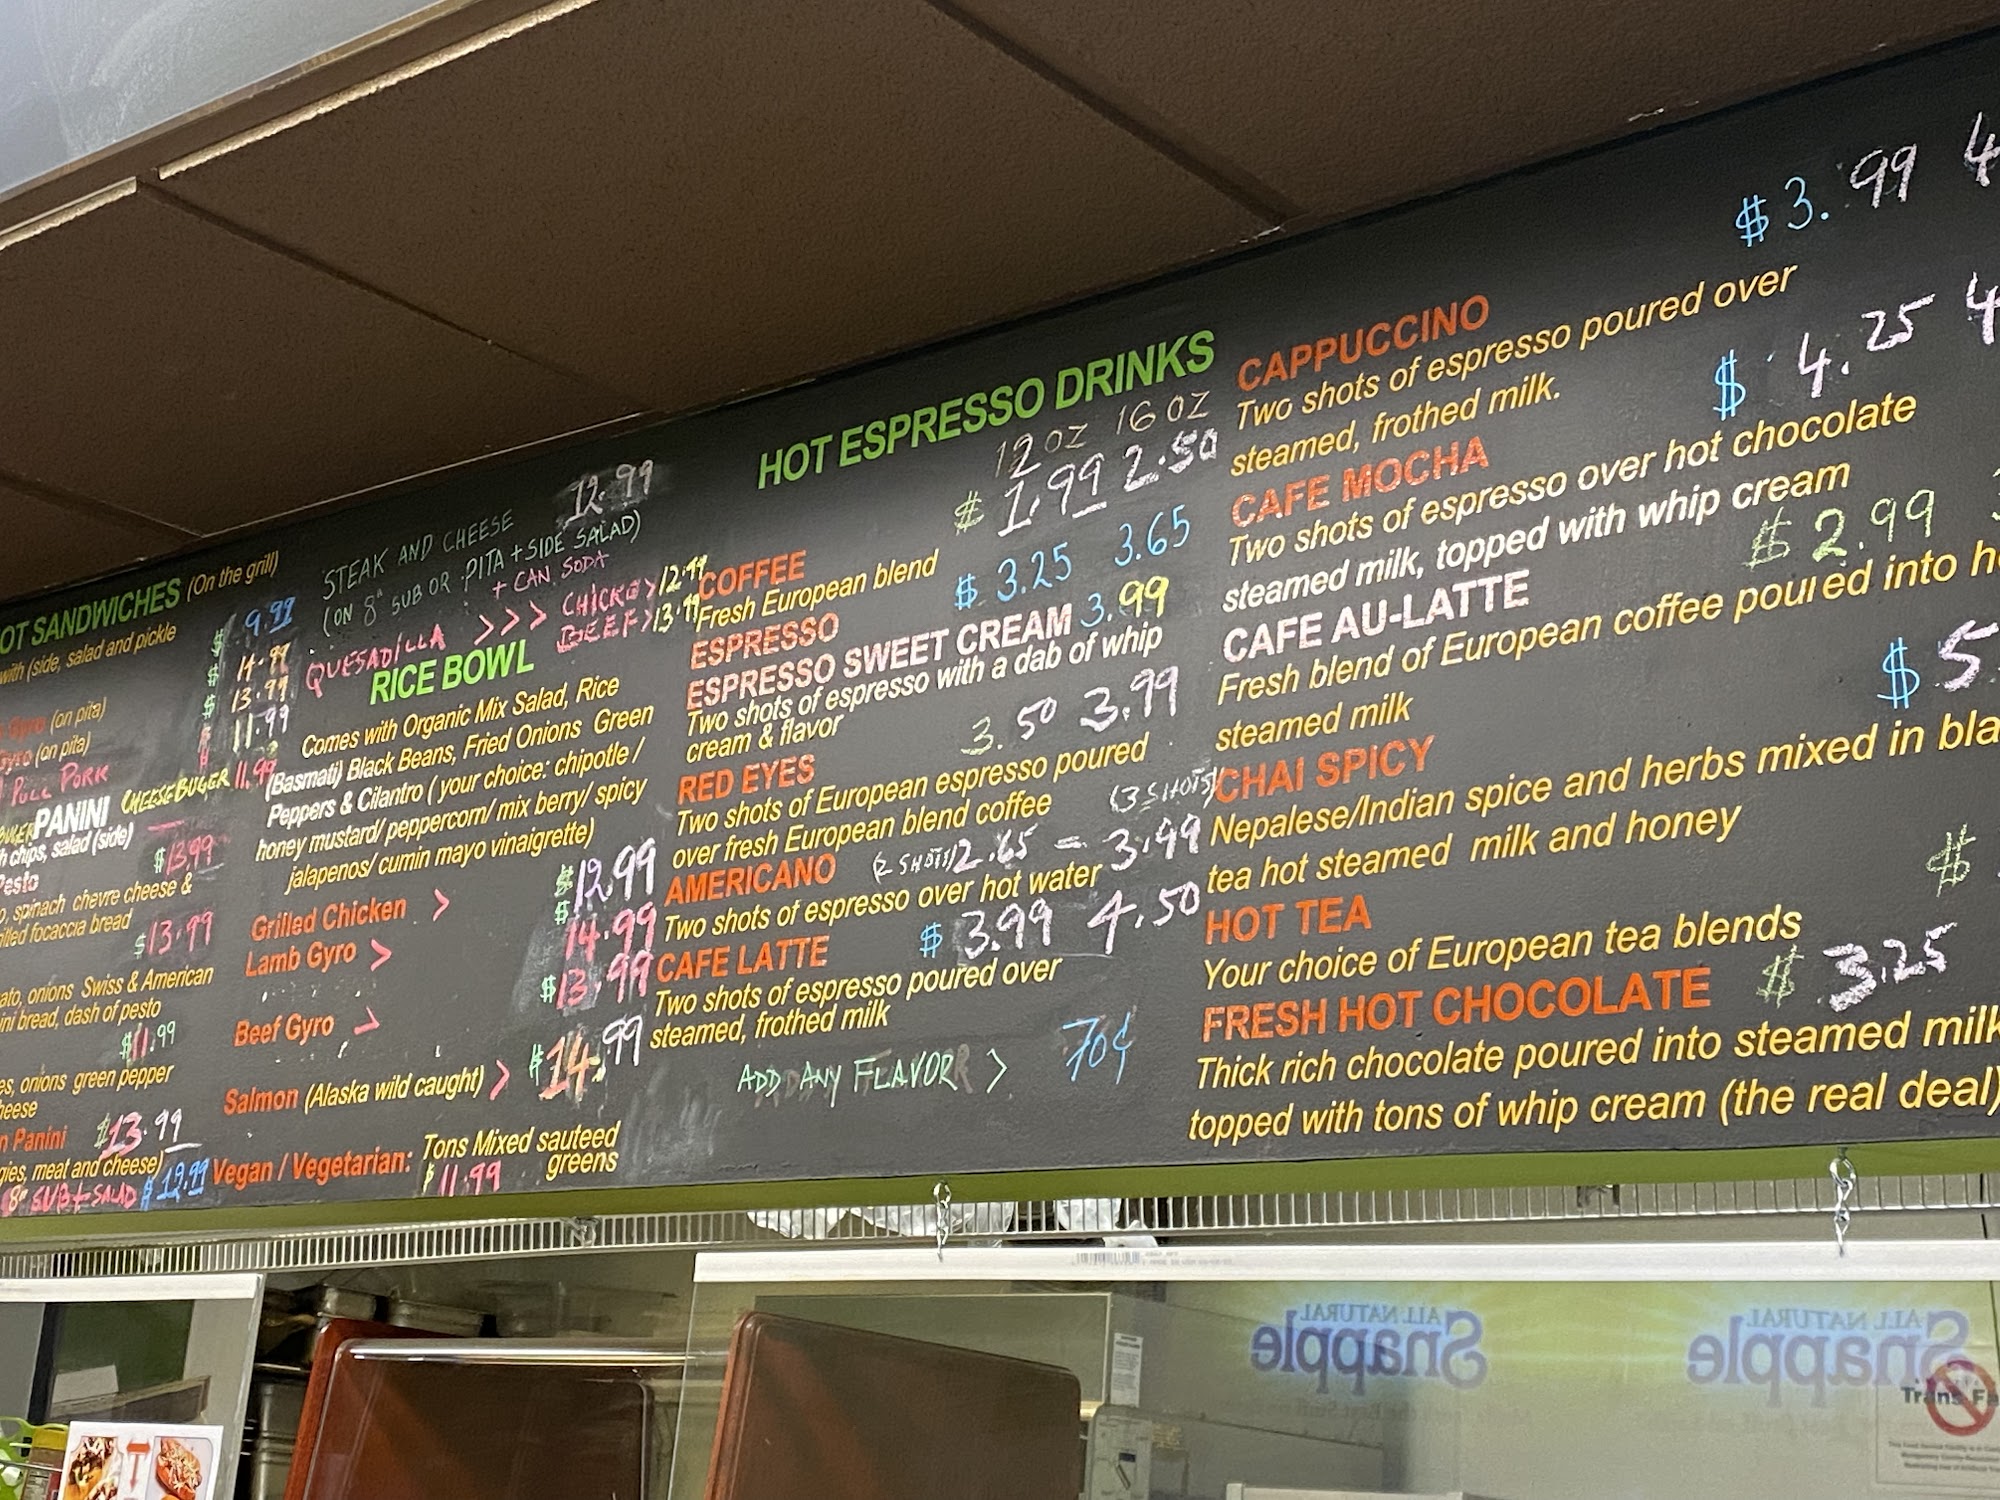 OT SANDWICHES (On the grill)
with (side, salad and pickle
$ 9.99
$ 14.99
$ 13.99
11.99
Gyro (on pita)
Gyro (on pita)
PULL PORK
CHEESEBUGER 11.99
PANINI
h chips, salad (side)
$13.99
Pesto
o, spinach chevre cheese &
illed focaccia bread
$13.99
ato, onions Swiss & American
ini bread, dash of pesto
$11.99
es, onions green pepper
heese
n Panini $13.99
gies, meat and cheese)
8" SUB + SALAD $12.99
STEAK AND CHEESE 12.99
(ON 8" SUB OR PITA + SIDE SALAD)
+ CAN SODA
QUESADILLA >>> CHICKG > 12.99
BEEF > 13.99
RICE BOWL
Comes with Organic Mix Salad, Rice
(Basmati) Black Beans, Fried Onions Green
Peppers & Cilantro ( your choice: chipotle /
honey mustard/ peppercorn/ mix berry/ spicy
jalapenos/ cumin mayo vinaigrette)
Grilled Chicken > $12.99
Lamb Gyro > $14.99
Beef Gyro > $13.99
Salmon (Alaska wild caught) > $14.99
Vegan / Vegetarian: Tons Mixed sauteed
greens
$11.99
HOT ESPRESSO DRINKS
12 OZ 16 OZ
$ 1.99 2.50
COFFEE
Fresh European blend
ESPRESSO $ 3.25 3.65
ESPRESSO SWEET CREAM 3.99
Two shots of espresso with a dab of whip
cream & flavor
3.50 3.99
RED EYES
Two shots of European espresso poured
over fresh European blend coffee
(3 SHOTS)
AMERICANO (2 SHOTS) 2.65 = 3.49
Two shots of espresso over hot water
CAFE LATTE $ 3.99 4.50
Two shots of espresso poured over
steamed, frothed milk
ADD ANY FLAVOR > 70¢
$3.99 4
CAPPUCCINO
Two shots of espresso poured over
steamed, frothed milk.
$ 4.25 4
CAFE MOCHA
Two shots of espresso over hot chocolate
steamed milk, topped with whip cream
$ 2.99
CAFE AU-LATTE
Fresh blend of European coffee poured into h
steamed milk
$ 5.
CHAI SPICY
Nepalese/Indian spice and herbs mixed in bla
tea hot steamed milk and honey
$
HOT TEA
Your choice of European tea blends
FRESH HOT CHOCOLATE $ 3.25
Thick rich chocolate poured into steamed milk
topped with tons of whip cream (the real deal)
ALL NATURAL
Snapple
ALL NATURAL
Snapple
Trans Fa